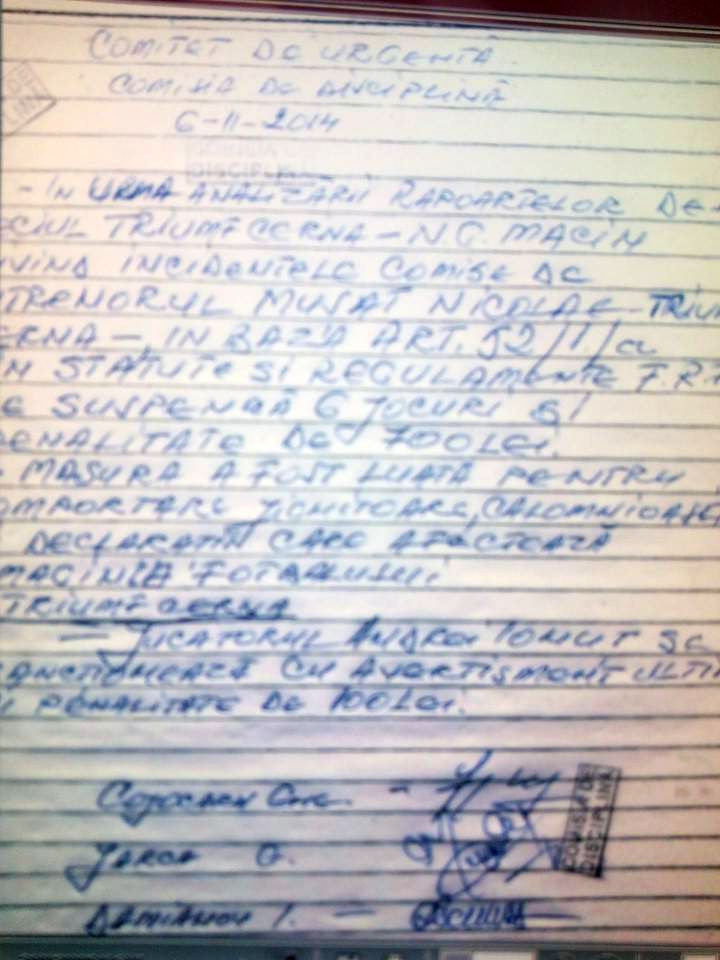 COMITET DE URGENTĂ
COMISIA DE DISCIPLINĂ
6-11-2014
COMISIA DE
DISCIPLINA
- IN URMA ANALIZĂRII RAPOARTELOR DE
CIUL TRIUMF CERNA - N.C. MACIN
VIND INCIDENTELE COMISE DE
TRENORUL MUSAT NICOLAE - TRIUM
ERNA -, IN BAZA ART. 52/1/a
IN STATUTE SI REGULAMENTE F.R.F
E SUSPENDĂ 6 JOCURI SI
PENALITATE DE 700 LEI.
MASURA A FOST LUATĂ PENTRU
OMPORTARE JIGNITOARE, CALOMNIOASE
DECLARATII CARE AFECTEAZĂ
MAGINEA FOTBALULUI
TRIUMF CERNA
- JUCATORUL ANDREI IONUT SE
ANCTIONEAZĂ CU AVERTISMENT ULTI
I PENALITATE DE 100 LEI.
G.
COMISIA DE
DISCIPLINA
I. -